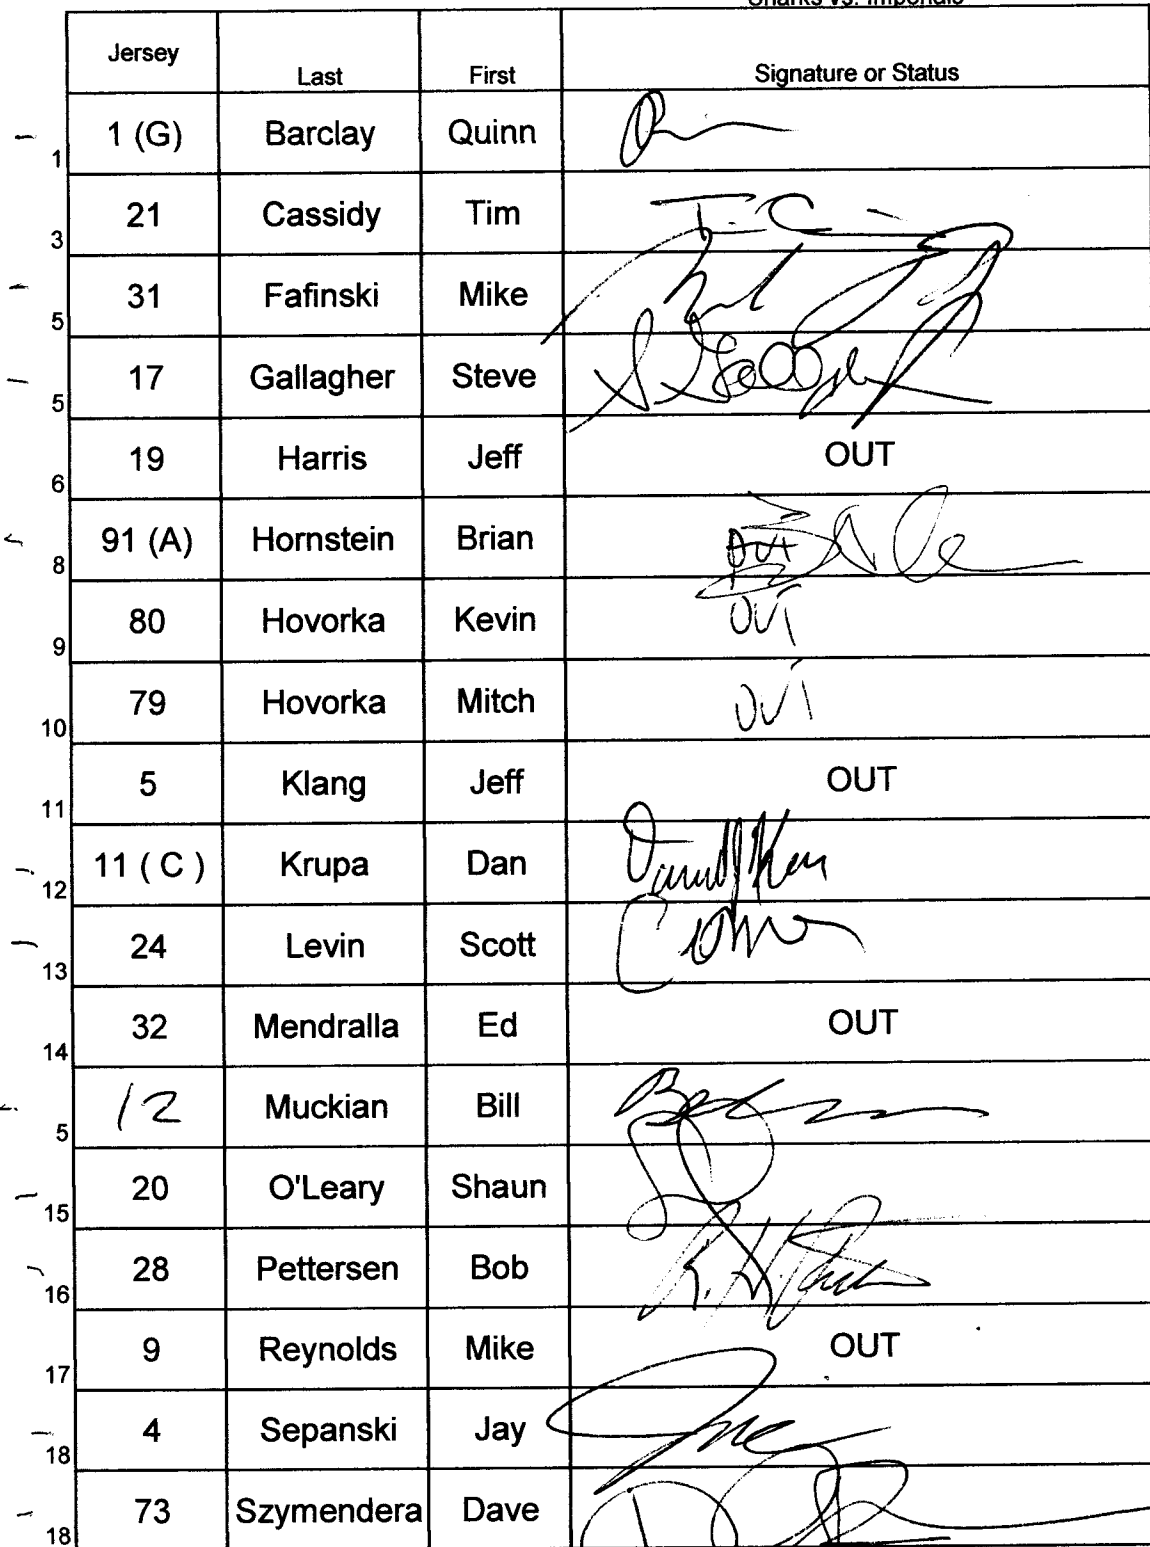 Sharks vs. Imperials
Jersey Last First Signature or Status
1 1 (G) Barclay Quinn
3 21 Cassidy Tim
5 31 Fafinski Mike
5 17 Gallagher Steve
6 19 Harris Jeff OUT
8 91 (A) Hornstein Brian OUT
9 80 Hovorka Kevin OUT
10 79 Hovorka Mitch OUT
11 5 Klang Jeff OUT
12 11 ( C ) Krupa Dan
13 24 Levin Scott
14 32 Mendralla Ed OUT
5 12 Muckian Bill
15 20 O'Leary Shaun
16 28 Pettersen Bob
17 9 Reynolds Mike OUT
18 4 Sepanski Jay
18 73 Szymendera Dave